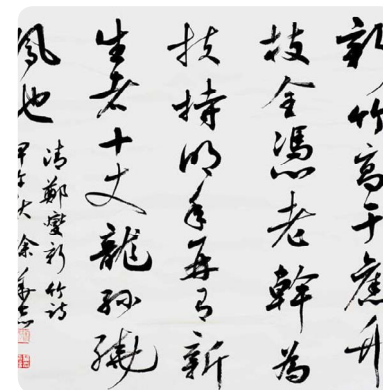 新竹高于舊竹
枝全憑老幹為
扶持明年再有新
生者十丈龍孫繞
鳳池
清鄭燮新竹詩
甲午秋余